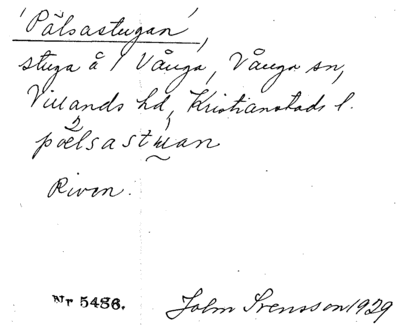 'Pålsastugan',
stuga å 1 Vånga, Vånga sn,
Villands hd, Kristianstads l.
pålsastúan
Riven.
Nr 5486. John Svensson 1929